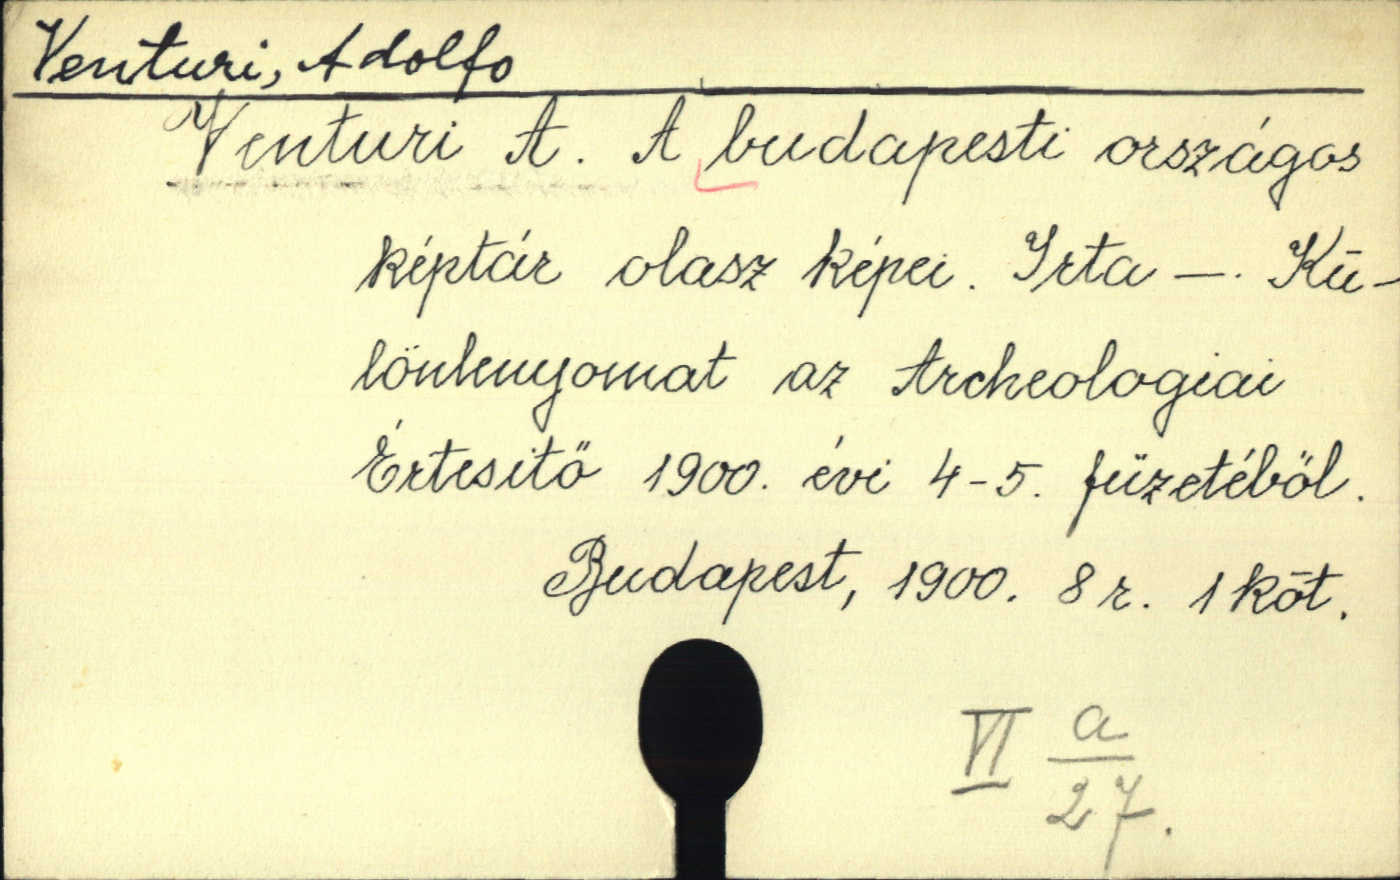 Venturi, Adolfo
Venturi A. A budapesti országos
képtár olasz képei. Irta —. Kü-
lönlenyomat az Archeologiai
Értesitő 1900. évi 4-5. füzetéből.
Budapest, 1900. 8 r. 1 köt.
VI a
27.